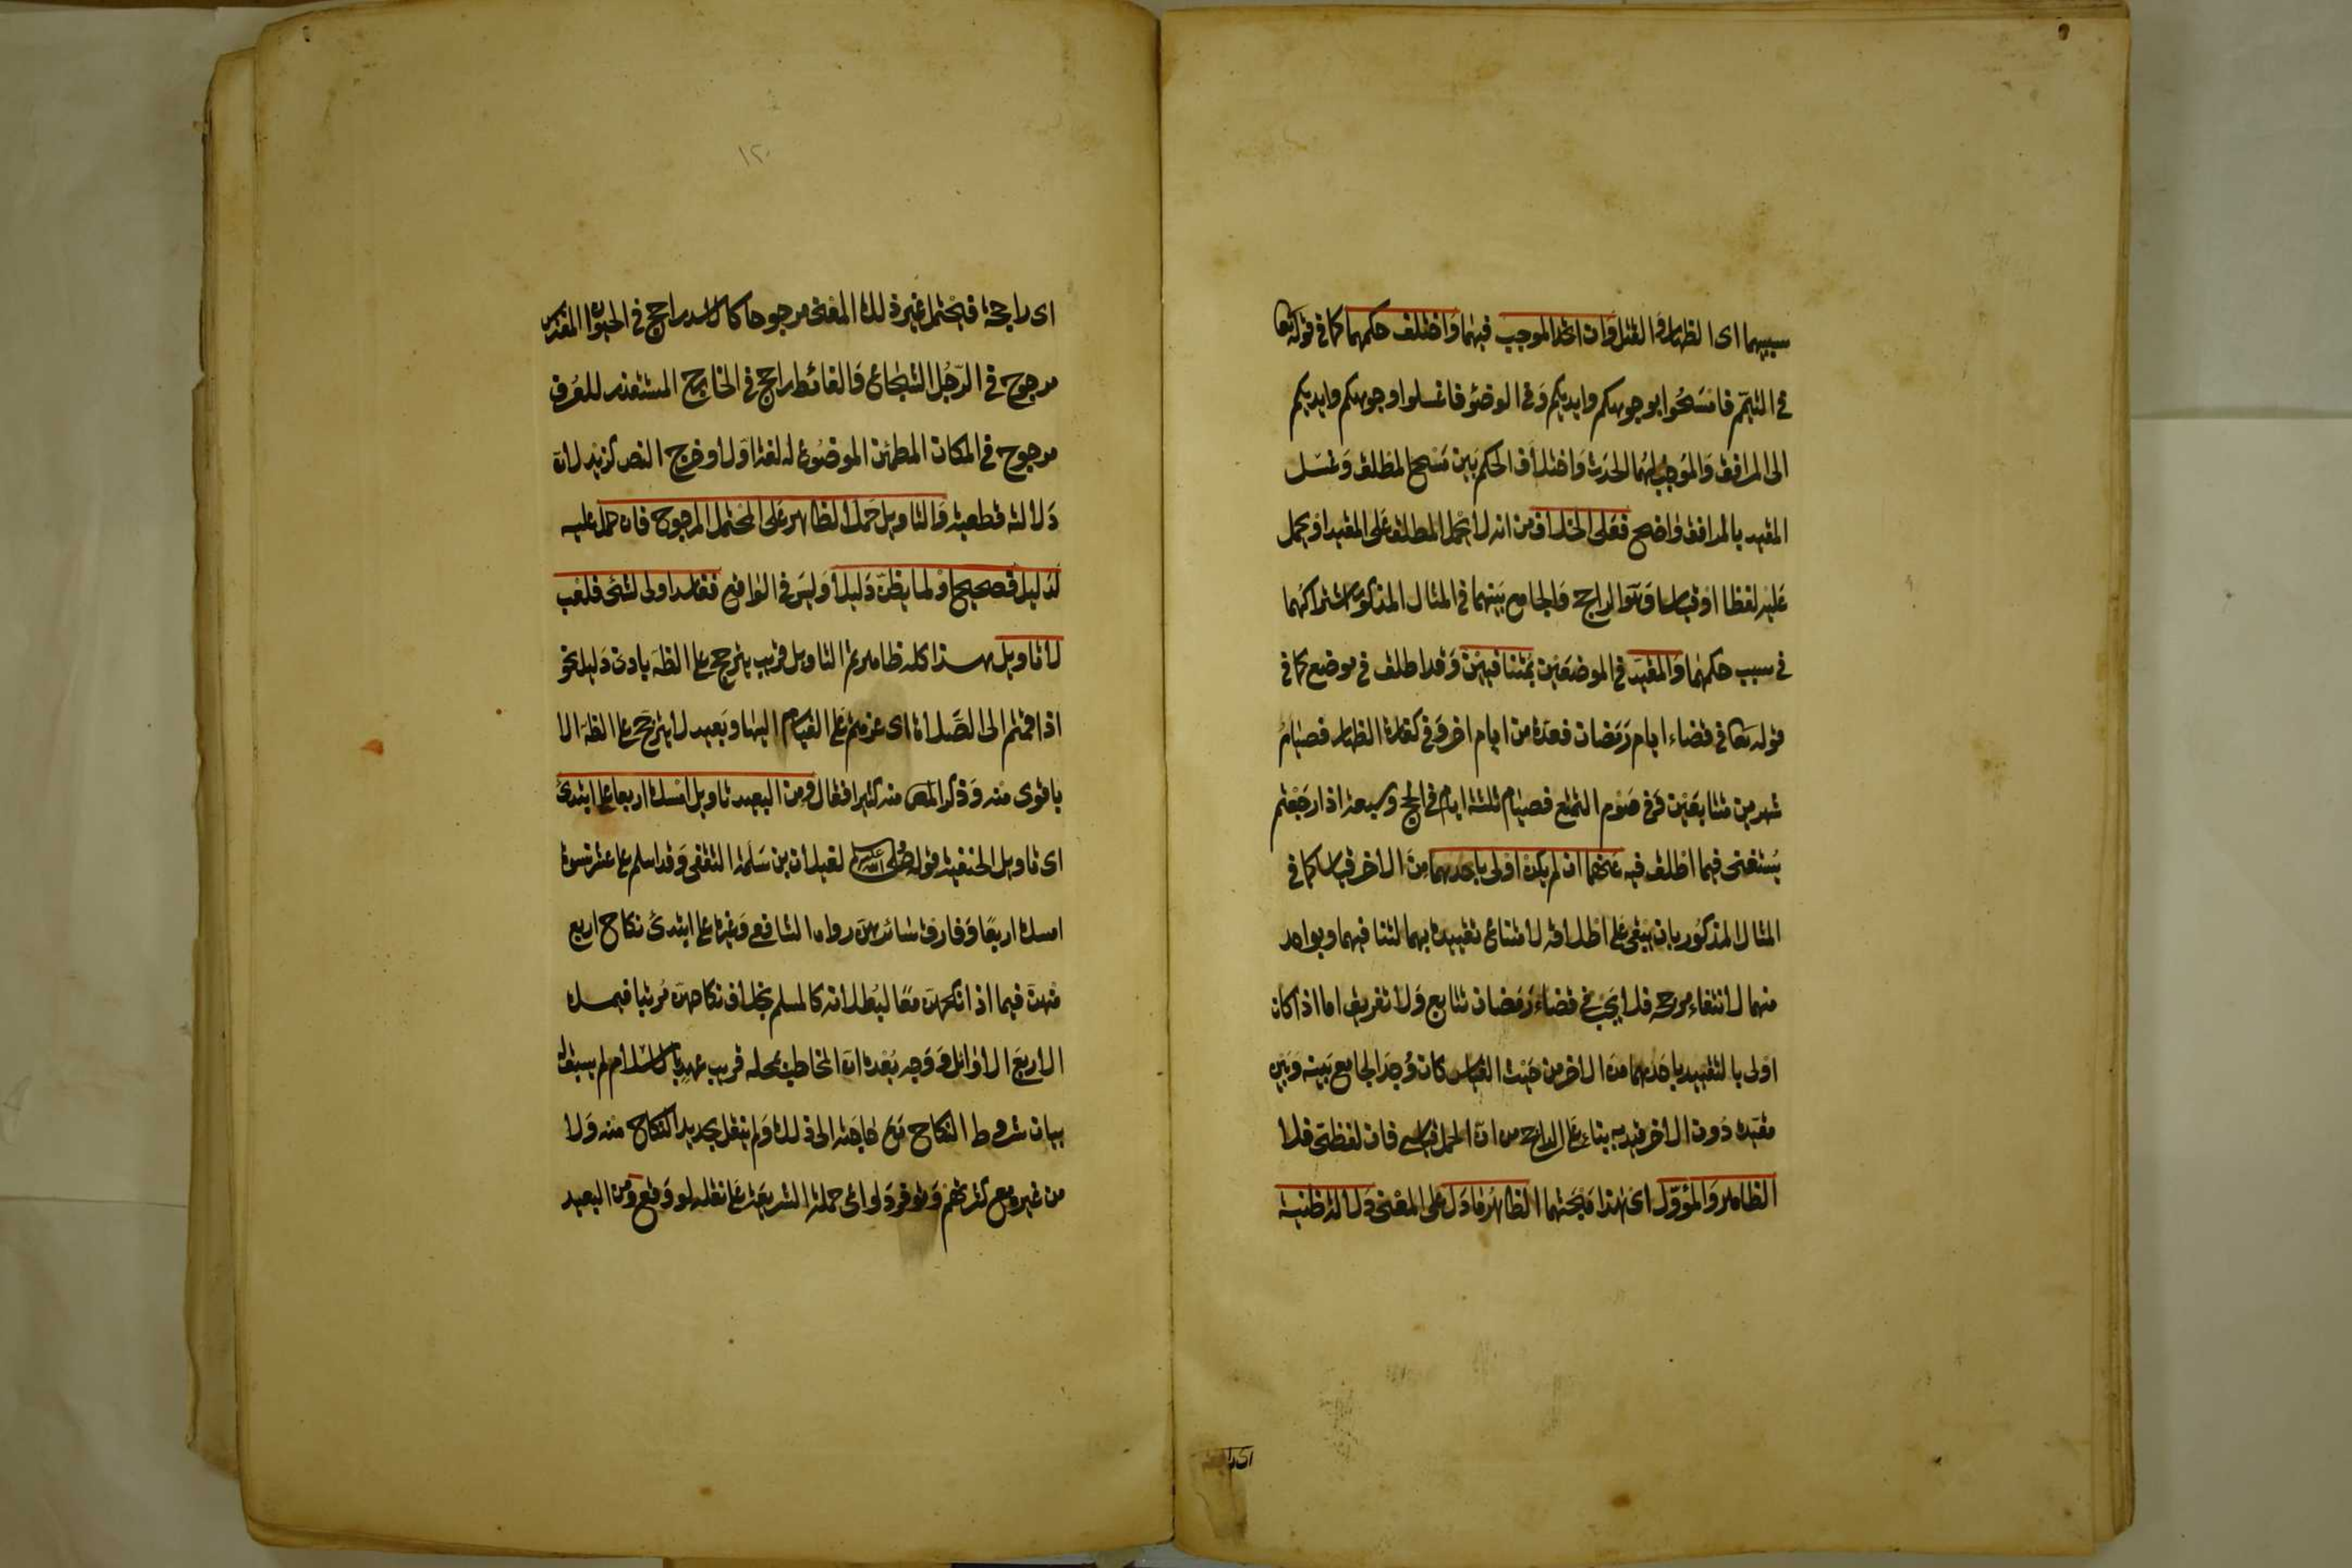 سببهما اى الظهار والقتل وان اتحد الموجب فيهما واختلف حكمهما كما فى قوله تعا
فى التيمم فامسحوا بوجوهكم وايديكم وفى الوضوء فاغسلوا وجوهكم وايديكم
الى المرافق والموجب لهما الحدث واختلاف الحكم بين مسح المطلق وغسل
المقيد بالمرافق واضح فعلى الخلاف من انه لا يحمل المطلق على المقيد او يحمل
عليه لفظا او قياسا وهو الراجح والجامع بينهما فى المثال المذكور اشتراكهما
فى سبب حكمهما والمقيد فى الموضعين بمتنافيين وقد اطلق فى موضع كما فى
قوله تعا فى قضاء ايام رمضان فعدة من ايام اخر وفى كفارة الظهار فصيام
شهرين متتابعين وفى صوم التمتع فصيام ثلثة ايام فى الحج وسبعة اذا رجعتم
يستغنى فيما اطلق فيه عنهما ان لم يكن اولى باحدهما من الاخر قياسا كما فى
المثال المذكور بان يبقى على اطلاقه لامتناع تقييده بهما لتنافيهما وبواحد
منهما لانتفاء مرجحه فلا يجب فى قضاء رمضان تتابع ولا تفريق اما اذا كان
اولى بالتقييد باحدهما من الاخر من حيث القياس كان وجد الجامع بينه وبين
مقيده دون الاخر قيد به بناء على الراجح من ان الحمل قياسى فان لفظى فلا
الظاهر والمؤول اى هذا مبحثهما الظاهر ما دل على المعنى دلالة ظنية
اى را
١٢٠
اى راجحة فيحتمل غير ذلك المعنى مرجوحا كالاسد راجح فى الحيوان المفترس
مرجوح فى الرجل الشجاع والغائط راجح فى الخارج المستقذر للعرف
مرجوح فى المكان المطمئن الموضوع له لغة اولا وخرج النص كزيد لان
دلالته قطعية والتاويل حمل الظاهر على المحتمل المرجوح فان حمل عليه
لدليل فصحيح او لما يظن دليلا وليس فى الواقع ففاسد او لا لشئ فلعب
لا تاويل هذا كله ظاهر ثم التاويل قريب يترجح على الظه بادنى دليل نحو
اذا قمتم الى الصلاة اى عزمتم على القيام اليها وبعيد لا يترجح على الظه الا
باقوى منه وذكر المص منه كثيرا فقال ومن البعيد تاويل امسك اربعا على ابتدئ
اى تاويل الحنفية قوله صلى الله عليه وسلم لغيلان بن سلمة الثقفى وقد اسلم على عشر نسوة
امسك اربعا وفارق سائرهن رواه الشافعى وغيره على ابتدئ نكاح اربع
منهن فيما اذا نكحهن معا لبطلانه كالمسلم بخلاف نكاحهن مرتبا فيمسك
الاربع الاوائل ووجه بعده ان المخاطب بمحله قريب عهد بالاسلام لم يسبق له
بيان شروط النكاح مع حاجته الى ذلك ولم ينقل تجديد النكاح منه ولا
من غيره مع كثرتهم وتوفر دواعى حملة الشريعة على نقله لو وقع ومن البعيد